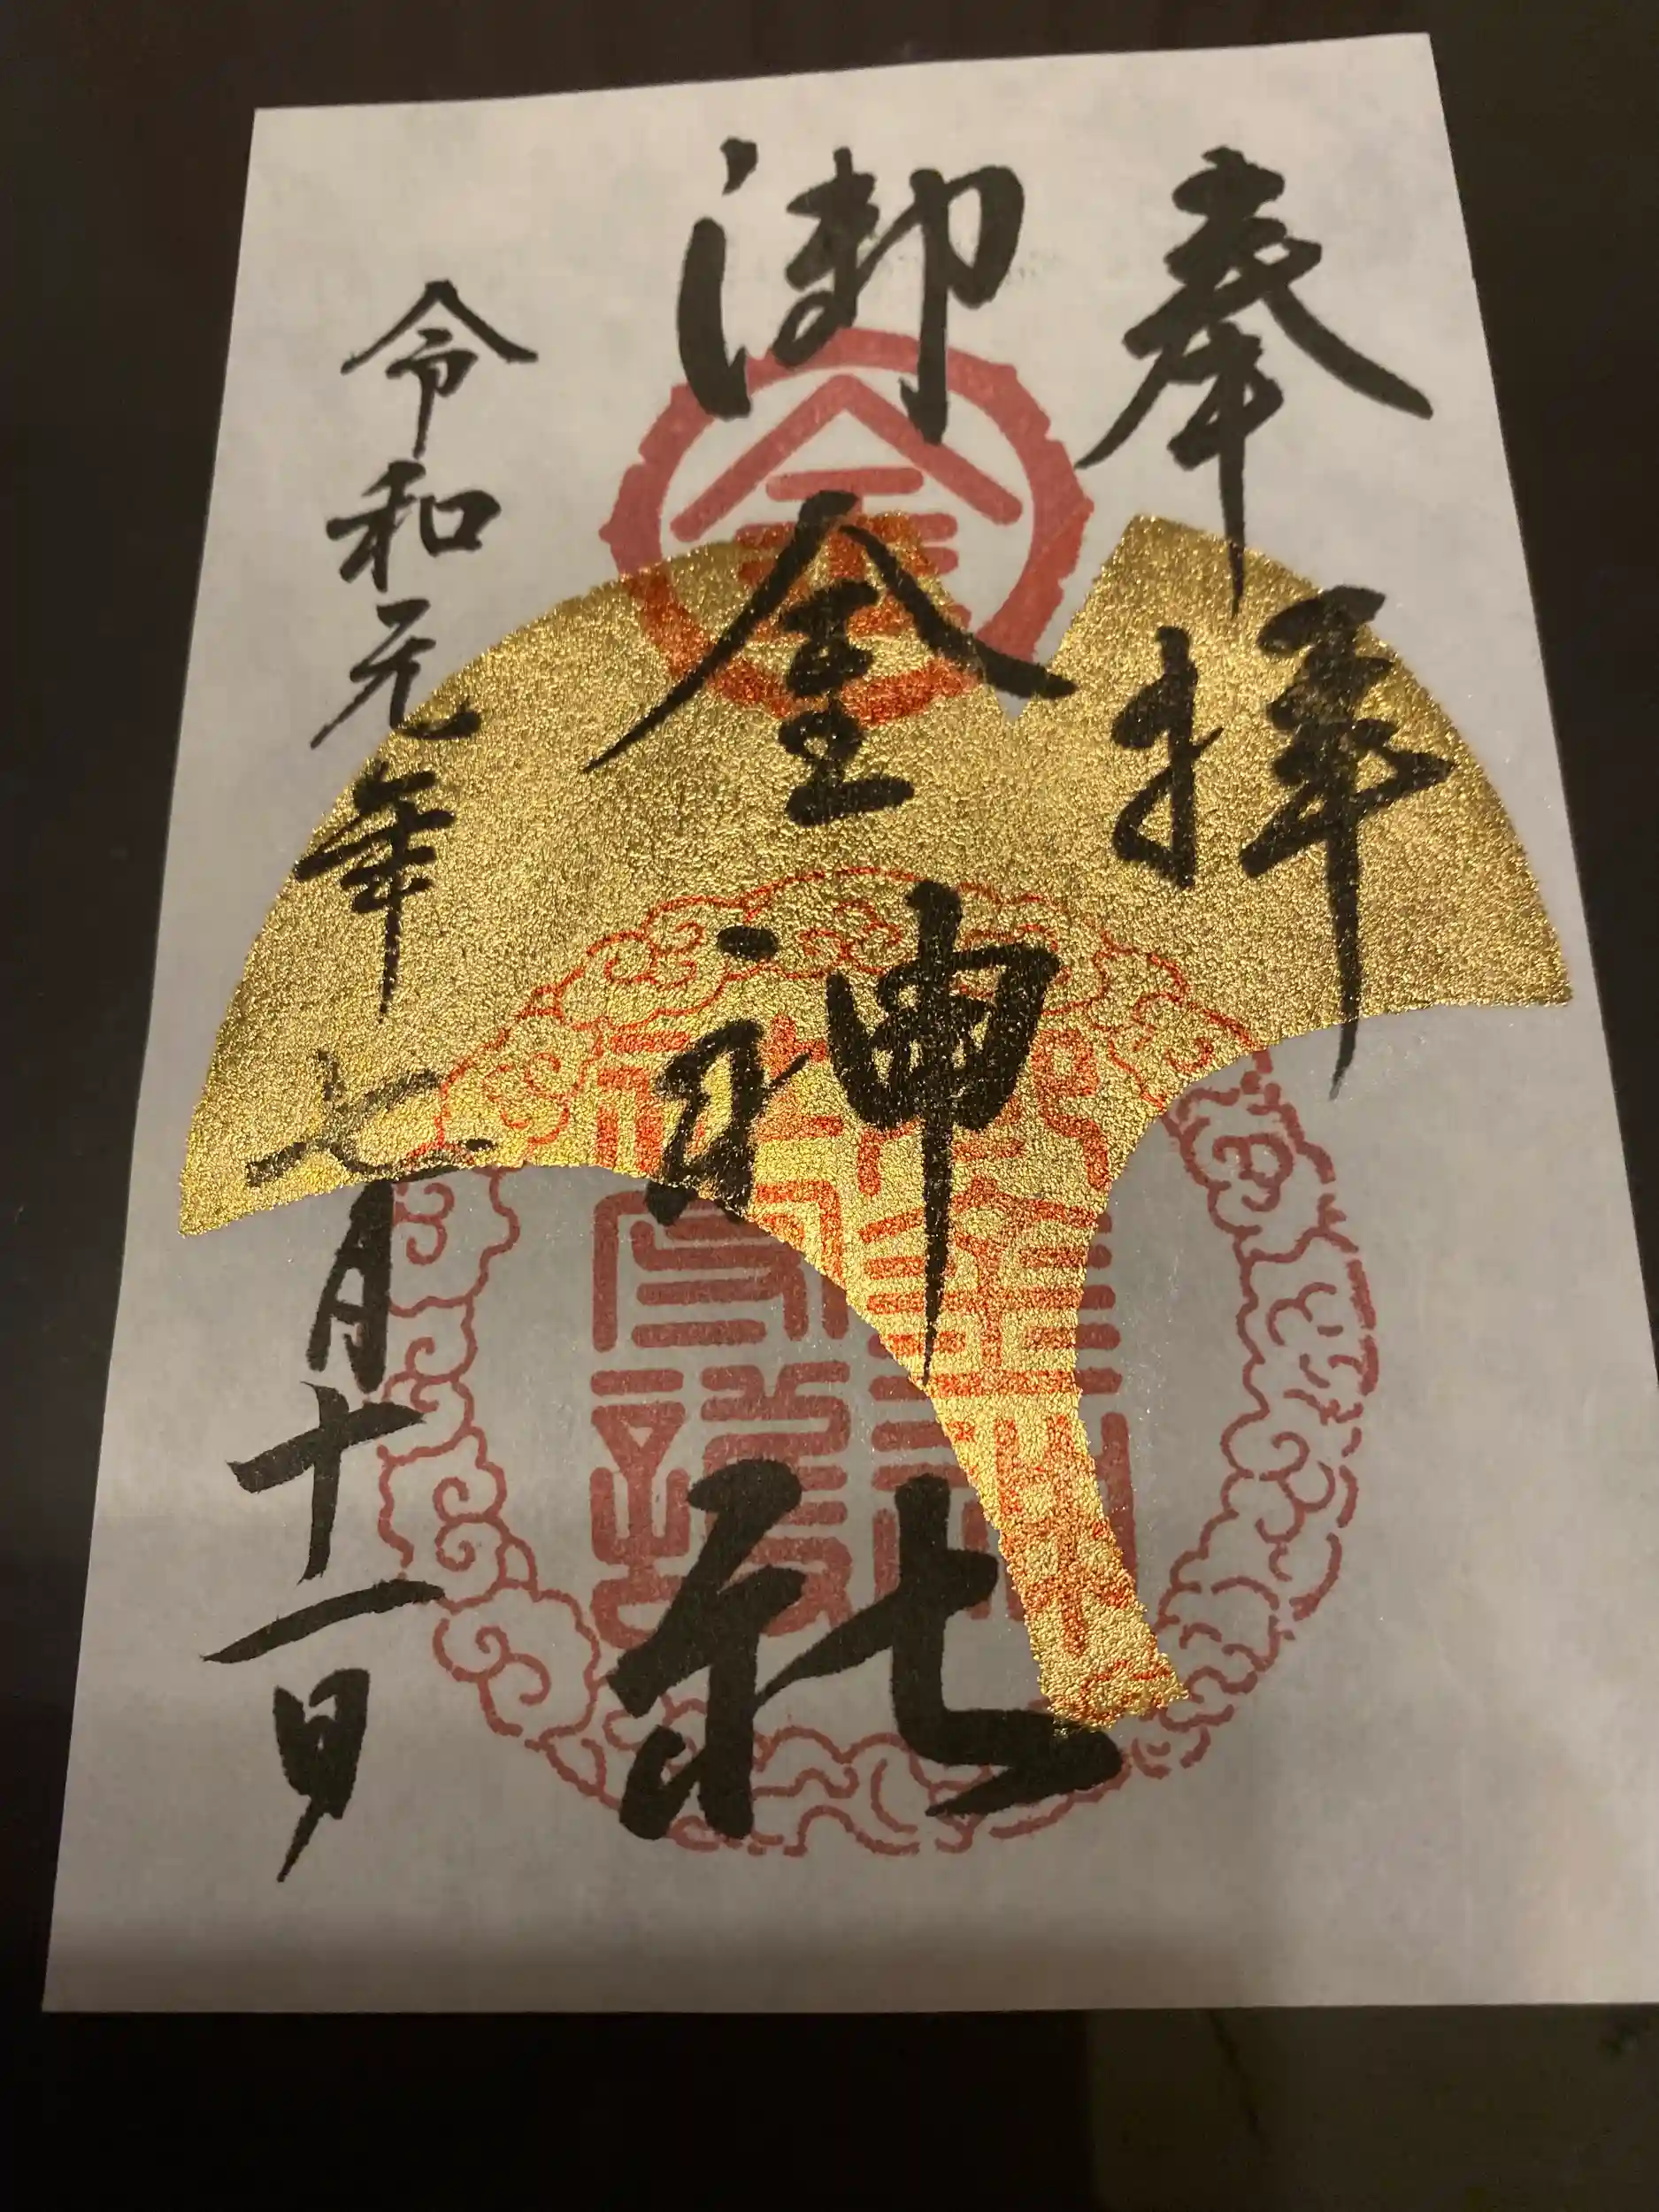 奉拝
御金神社
令和元年七月十一日
金